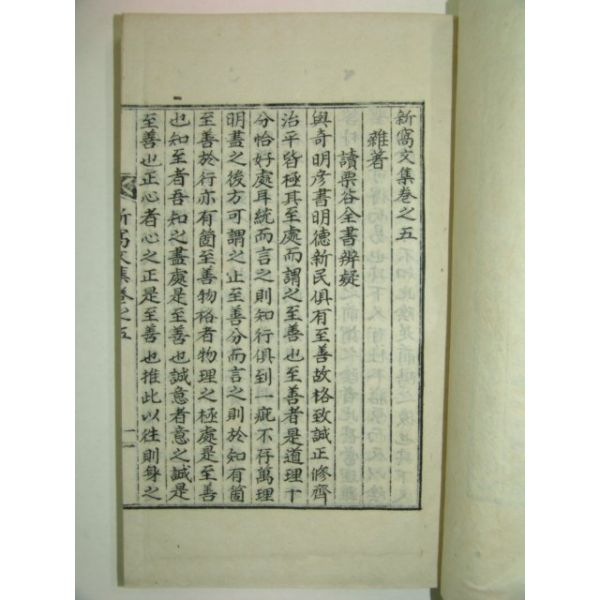 新窩文集卷之五
雜著
讀栗谷全書辨疑
與奇明彥書明德新民俱有至善故格致誠正修齊
治平皆極其至處而謂之至善也至善者是道理十
分恰好處耳統而言之則知行俱到一疵不存萬理
明盡之後方可謂之止至善分而言之則於知有箇
至善於行亦有箇至善物格者物理之極處是至善
也知至者吾知之盡處是至善也誠意者意之誠是
至善也正心者心之正是至善也推此以往則身之
新窩文集卷之五
一